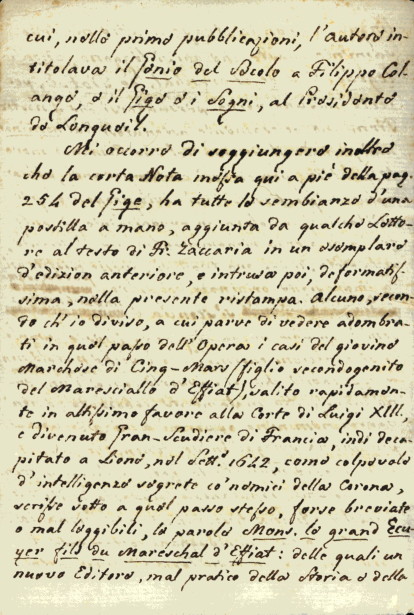 cui, nelle prime pubblicazioni, l'autore in-
titolava il Genio del Secolo a Filippo Col-
ange, e il Gige e i Sogni, al Presidente
de Longueil.
Mi occorre di soggiungere inoltre
che la corta Nota messa qui a piè della pag.
254 del Gige, ha tutte le sembianze d'una
postilla a mano, aggiunta da qualche Letto-
re al testo di Fr. Zaccaria in un esemplare
d'edizion anteriore, e intrusa poi, deformatis-
sima, nella presente ristampa. Alcuno, secon-
do ch'io diviso, a cui parve di vedere adombra-
ti in quel passo dell'Opera i casi del giovine
Marchese di Cinq-Mars (figlio secondogenito
del Maresciallo d'Effiat), salito rapidamen-
te in altissimo favore alla Corte di Luigi XIII,
e divenuto Gran-Scudiere di Francia, indi deca-
pitato a Lione, nel Sett.e 1642, come colpevole
d'intelligenze segrete co' nemici della Corona,
scrisse sotto a quel passo stesso, forse breviate
o mal leggibili, le parole Mons. le grand Ecu-
yer fils du Mareschal d'Effiat: delle quali un
nuovo Editore, mal pratico della Storia e della